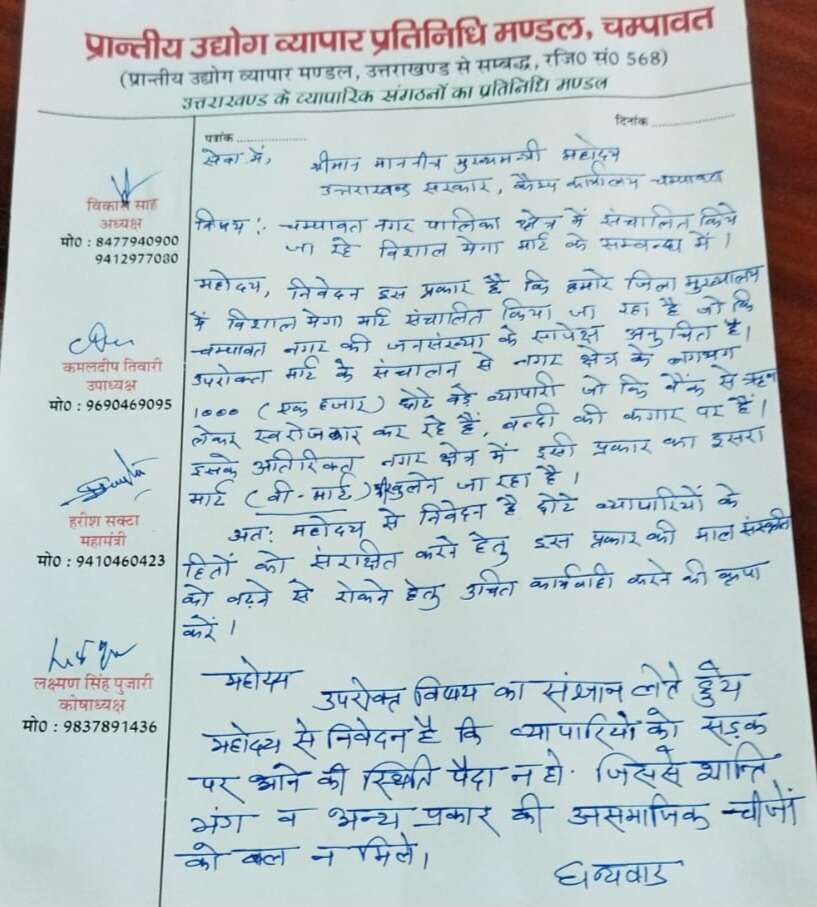 प्रान्तीय उद्योग व्यापार प्रतिनिधि मण्डल, चम्पावत
(प्रान्तीय उद्योग व्यापार मण्डल, उत्तराखण्ड से सम्बद्ध, रजि0 सं0 568)
उत्तराखण्ड के व्यापारिक संगठनों का प्रतिनिधि मण्डल
पत्रांक ..................
दिनांक ......................
विकास साह
अध्यक्ष
मो0 : 8477940900
9412977030
कमलदीप तिवारी
उपाध्यक्ष
मो0 : 9690469095
हरीश सक्टा
महामंत्री
मो0 : 9410460423
लक्ष्मण सिंह पुजारी
कोषाध्यक्ष
मो0 : 9837891436
सेवा में,
श्रीमान माननीय मुख्यमन्त्री महोदय
उत्तराखण्ड सरकार, कैम्प कार्यालय चम्पावत
विषय :- चम्पावत नगर पालिका क्षेत्र में संचालित किये
जा रहे विशाल मेगा मार्ट के सम्बन्ध में।
महोदय, निवेदन इस प्रकार है कि हमारे जिला मुख्यालय
में विशाल मेगा मार्ट संचालित किया जा रहा है जो कि
चम्पावत नगर की जनसंख्या के सापेक्ष अनुचित है।
उपरोक्त मार्ट के संचालन से नगर क्षेत्र के लगभग
1000 (एक हजार) छोटे बड़े व्यापारी जो कि बैंक से ऋण
लेकर स्वरोजगार कर रहे हैं, बन्दी की कगार पर हैं।
इसके अतिरिक्त नगर क्षेत्र में इसी प्रकार का दूसरा
मार्ट (वी-मार्ट) खुलने जा रहा है।
अतः महोदय से निवेदन है छोटे व्यापारियों के
हितों को संरक्षित करने हेतु इस प्रकार की माल संस्कृति
को बढ़ने से रोकने हेतु उचित कार्यवाही करने की कृपा
करें।
महोदय
उपरोक्त विषय का संज्ञान लेते हुये
महोदय से निवेदन है कि व्यापारियों को सड़क
पर आने की स्थिति पैदा न हो. जिससे शान्ति
भंग व अन्य प्रकार की असमाजिक चीजों
को बल न मिले।
धन्यवाद